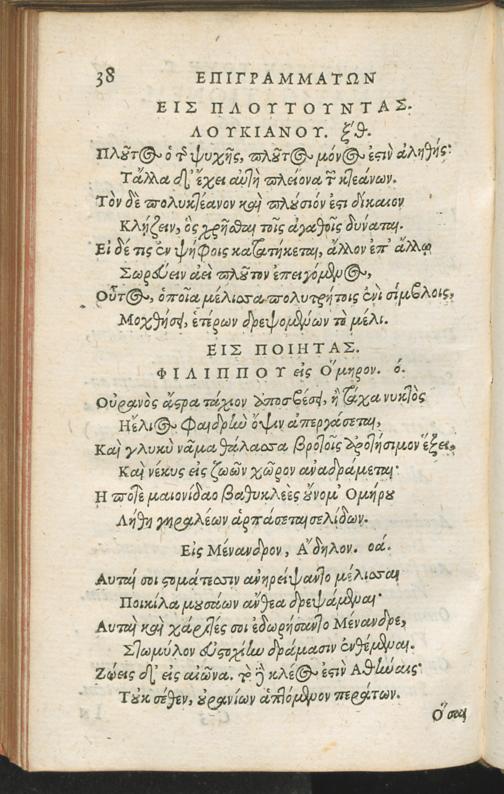 38 ΕΠΙΓΡΑΜΜΑΤΩΝ
ΕΙΣ ΠΛΟΥΤΟΥΝΤΑΣ.
ΛΟΥΚΙΑΝΟΥ. ξθ.
Πλοῦτος ὁ τῆς ψυχῆς, πλοῦτος μόνος ἐστὶν ἀληθής·
Τἄλλα δ' ἔχει αὐτὴ πλείονα τῶν κτεάνων.
Τὸν δὲ πολυκτέανον καὶ πλούσιόν ἐστι δίκαιον
Κλήζειν, ὃς χρῆσθαι τοῖς ἀγαθοῖς δύναται.
Εἰ δέ τις ἐν ψήφοις κατατήκεται, ἄλλον ἐπ' ἄλλῳ
Σωρεύειν ἀεὶ πλοῦτον ἐπειγόμενος,
Οὗτος, ὁποῖα μέλισσα πολυτρήτοις ἐνὶ σίμβλοις,
Μοχθήσει, ἑτέρων δρεψομένων τὸ μέλι.
ΕΙΣ ΠΟΙΗΤΑΣ.
ΦΙΛΙΠΠΟΥ εἰς Ὅμηρον. ό.
Οὐρανὸς ἄστρα τάχιον ἀποσβέσει, ἢ τάχα νυκτὸς
Ἠέλιος φαιδρὴν ὄψιν ἀπεργάσεται,
Καὶ γλυκὺ νᾶμα θάλασσα βροτοῖς ἀροτήσιμον ἕξει,
Καὶ νέκυς εἰς ζωῶν χῶρον ἀναδράμεται·
Ἤ ποτε μαιονίδαο βαθυκλεὲς οὔνομ' Ὁμήρου
Λήθη γηραλέων ἁρπάσεται σελίδων.
Εἰς Μένανδρον, Ἄδηλον. οα.
Αὐταί σοι στομάτεσσιν ἀνηρείψαντο μέλισσαι
Ποικίλα μουσάων ἄνθεα δρεψάμεναι·
Αὐταὶ καὶ χάριτές σοι ἐδωρήσαντο Μένανδρε,
Στωμύλον εὐστοχίην δράμασιν ἐνθέμεναι.
Ζώεις δ' εἰς αἰῶνα. τὸ δὴ κλέος ἐστὶν Ἀθήναις·
Τοὐκ σέθεν, οὐρανίων ἁπτόμενον περάτων.
Ὅσσαι